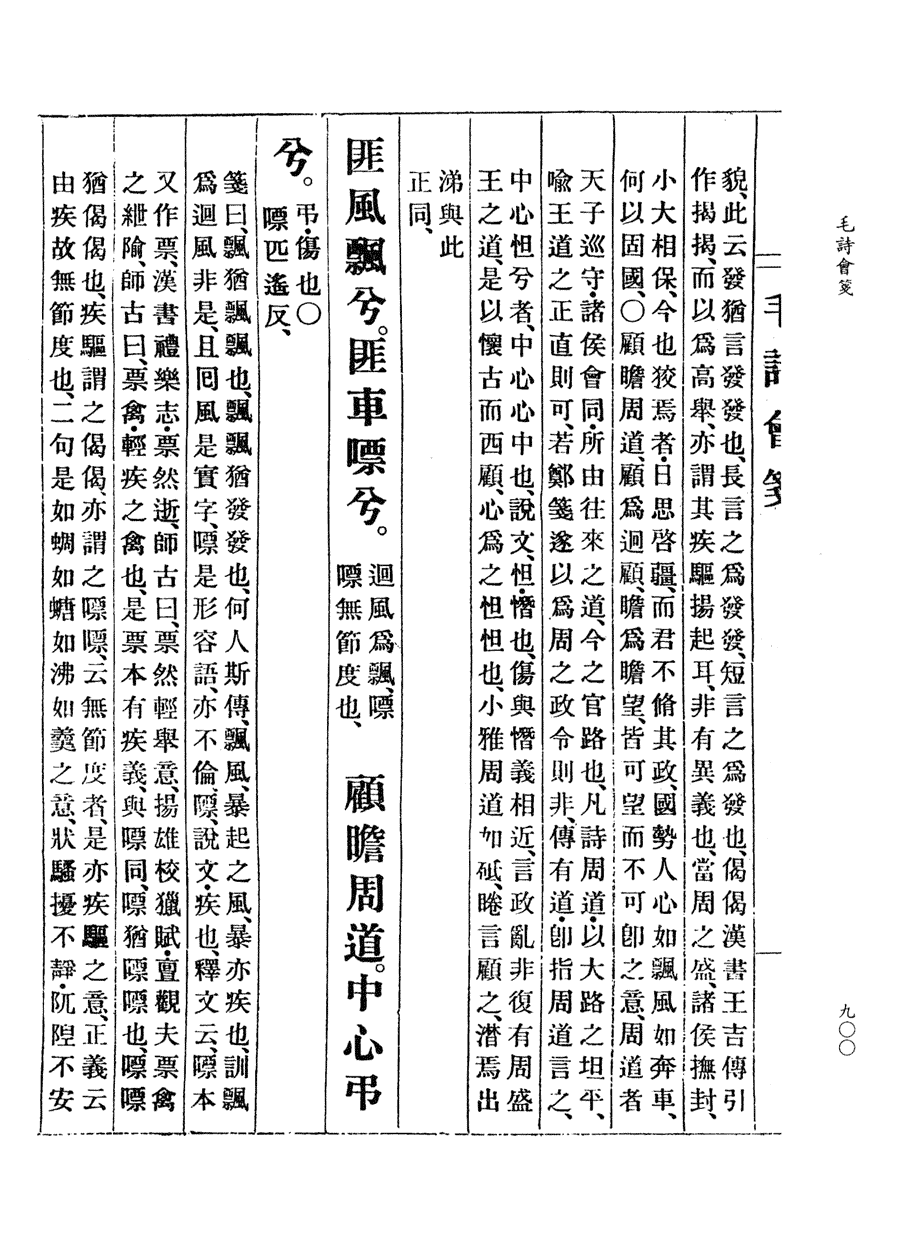 毛詩會箋
九〇〇
毛詩會箋
貌、此云發猶言發發也、長言之爲發發、短言之爲發也、偈偈漢書王吉傳引
作揭揭、而以爲高舉、亦謂其疾驅揚起耳、非有異義也、當周之盛、諸侯撫封、
小大相保、今也狡焉者、日思啓疆、而君不脩其政、國勢人心如飄風如奔車、
何以固國、〇顧瞻周道、顧爲迴顧、瞻爲瞻望、皆可望而不可卽之意、周道者
天子巡守、諸侯會同、所由往來之道、今之官路也、凡詩周道、以大路之坦平、
喩王道之正直則可、若鄭箋遂以爲周之政令則非、傳有道、卽指周道言之、
中心怛兮者、中心心中也、說文、怛、憯也、傷與憯義相近、言政亂非復有周盛
王之道、是以懷古而西顧、心爲之怛怛也、小雅周道如砥、睠言顧之、潸焉出
涕與此
正同、
匪風飄兮。匪車嘌兮。
迴風爲飄、嘌
嘌無節度也、
顧瞻周道。中心弔
兮。
弔、傷也〇
嘌匹遙反、
箋曰、飄猶飄飄也、飄飄猶發發也、何人斯傳、飄風、暴起之風、暴亦疾也、訓飄
爲迴風非是、且囘風是實字、嘌是形容語、亦不倫、嘌、說文、疾也、釋文云、嘌本
又作票、漢書禮樂志、票然逝、師古曰、票然輕舉意、揚雄校獵賦、亶觀夫票禽
之紲隃、師古曰、票禽、輕疾之禽也、是票本有疾義、與嘌同、嘌猶嘌嘌也、嘌嘌
猶偈偈也、疾驅謂之偈偈、亦謂之嘌嘌、云無節度者、是亦疾驅之意、正義云
由疾故無節度也、二句是如蜩如螗如沸如羹之意、狀騷擾不靜、阢隉不安